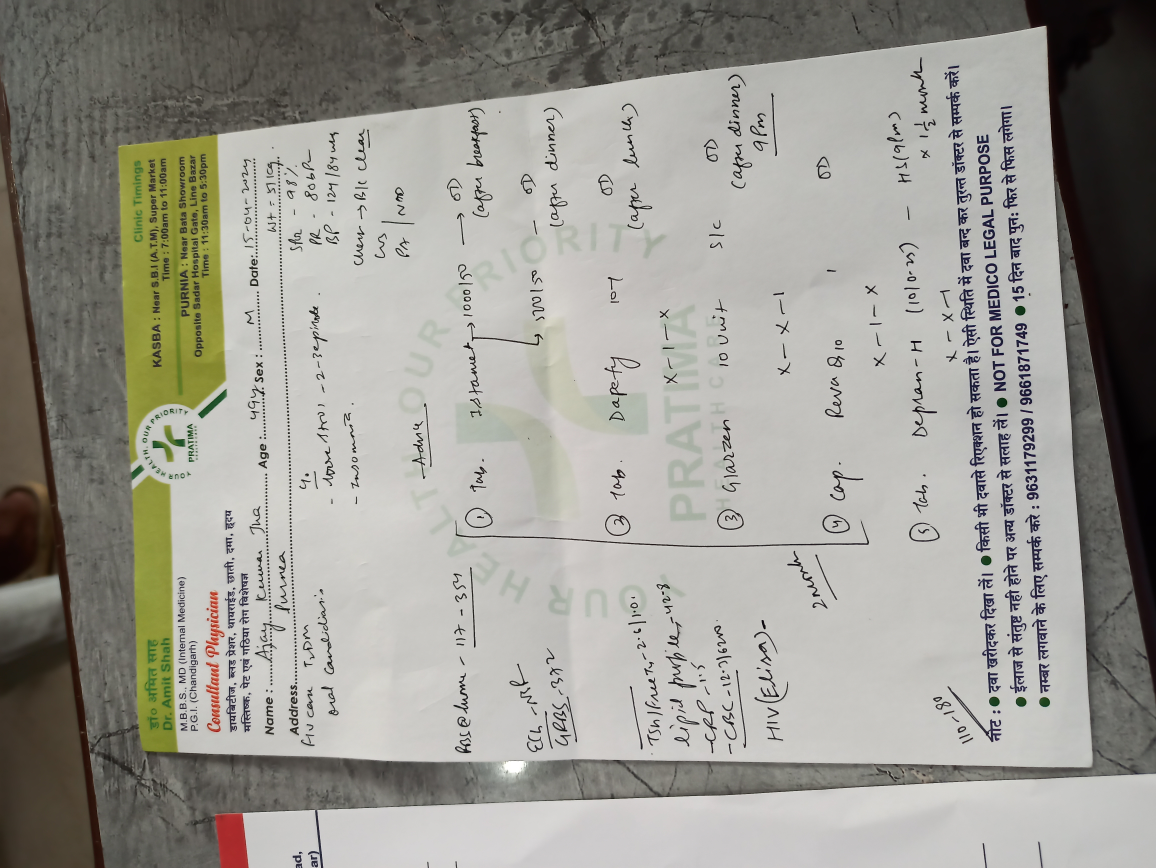 डा० अमित साह
Dr. Amit Shah
M.B.B.S., MD (Internal Medicine)
P.G.I. (Chandigarh)
Consultant Physician
डायबिटीज, ब्लड प्रेशर, थायराईड, छाती, दमा, हृदय
मस्तिष्क, पेट एवं गठिया रोग विशेषज्ञ
YOUR HEALTH, OUR PRIORITY
PRATIMA
Clinic Timings
KASBA : Near S.B.I (A.T.M), Super Market
Time : 7:00am to 11:00am
PURNIA : Near Bata Showroom
Opposite Sadar Hospital Gate, Line Bazar
Time : 11:30am to 5:30pm
Name : Ajay Kumar Jha Age : 49y Sex : M Date: 15-04-2024
Address Purnea Wt = 51 kg
F/U case T2DM
oral candidiasis
c/o
- loose stool - 2-3 episode.
- Insomnia.
SPO2 - 98%
PR - 80b/R
BP - 124/84
Chest → B/L clear
CVS
PA | NAD
Advice
RBS@home - 117 - 357
ECG - NSR
GRBS - 372
TSH/Free T4 - 2.6/1.0
lipid profile - 42.8
- CRP - 1.5
- CBC - 12.7/6200
HIV (Elisa) -
① Tab. Istamet → 1000/50 → OD (after breakfast)
→ 500/50 - OD (after dinner)
② Tab. Daparyl 10-1 OD (after lunch)
x - 1 - x
③ Glarzen 10 Unit S/C OD (after dinner)
9 Pm
x - x - 1
④ Cap. Reva D 10 1 OD
x - 1 - x
2 month
⑤ Tab. Depran-H (10/0.25) - HS (9Pm)
x - x - 1 x 1½ month
110-180
नोट : ● दवा खरीदकर दिखा लें। ● किसी भी दवासे रिएक्शन हो सकता है। ऐसी स्थिति में दवा बन्द कर तुरन्त डॉक्टर से सम्पर्क करें।
● ईलाज से संतुष्ट नही होने पर अन्य डॉक्टर से सलाह लें। ● NOT FOR MEDICO LEGAL PURPOSE
● नम्बर लगावाने के लिए सम्पर्क करे : 9631179299 / 9661871749 ● 15 दिन बाद पुन: फिर से फिस लगेगा।
YOUR HEALTH OUR PRIORITY
PRATIMA
HEALTHCARE
ad,
ar)